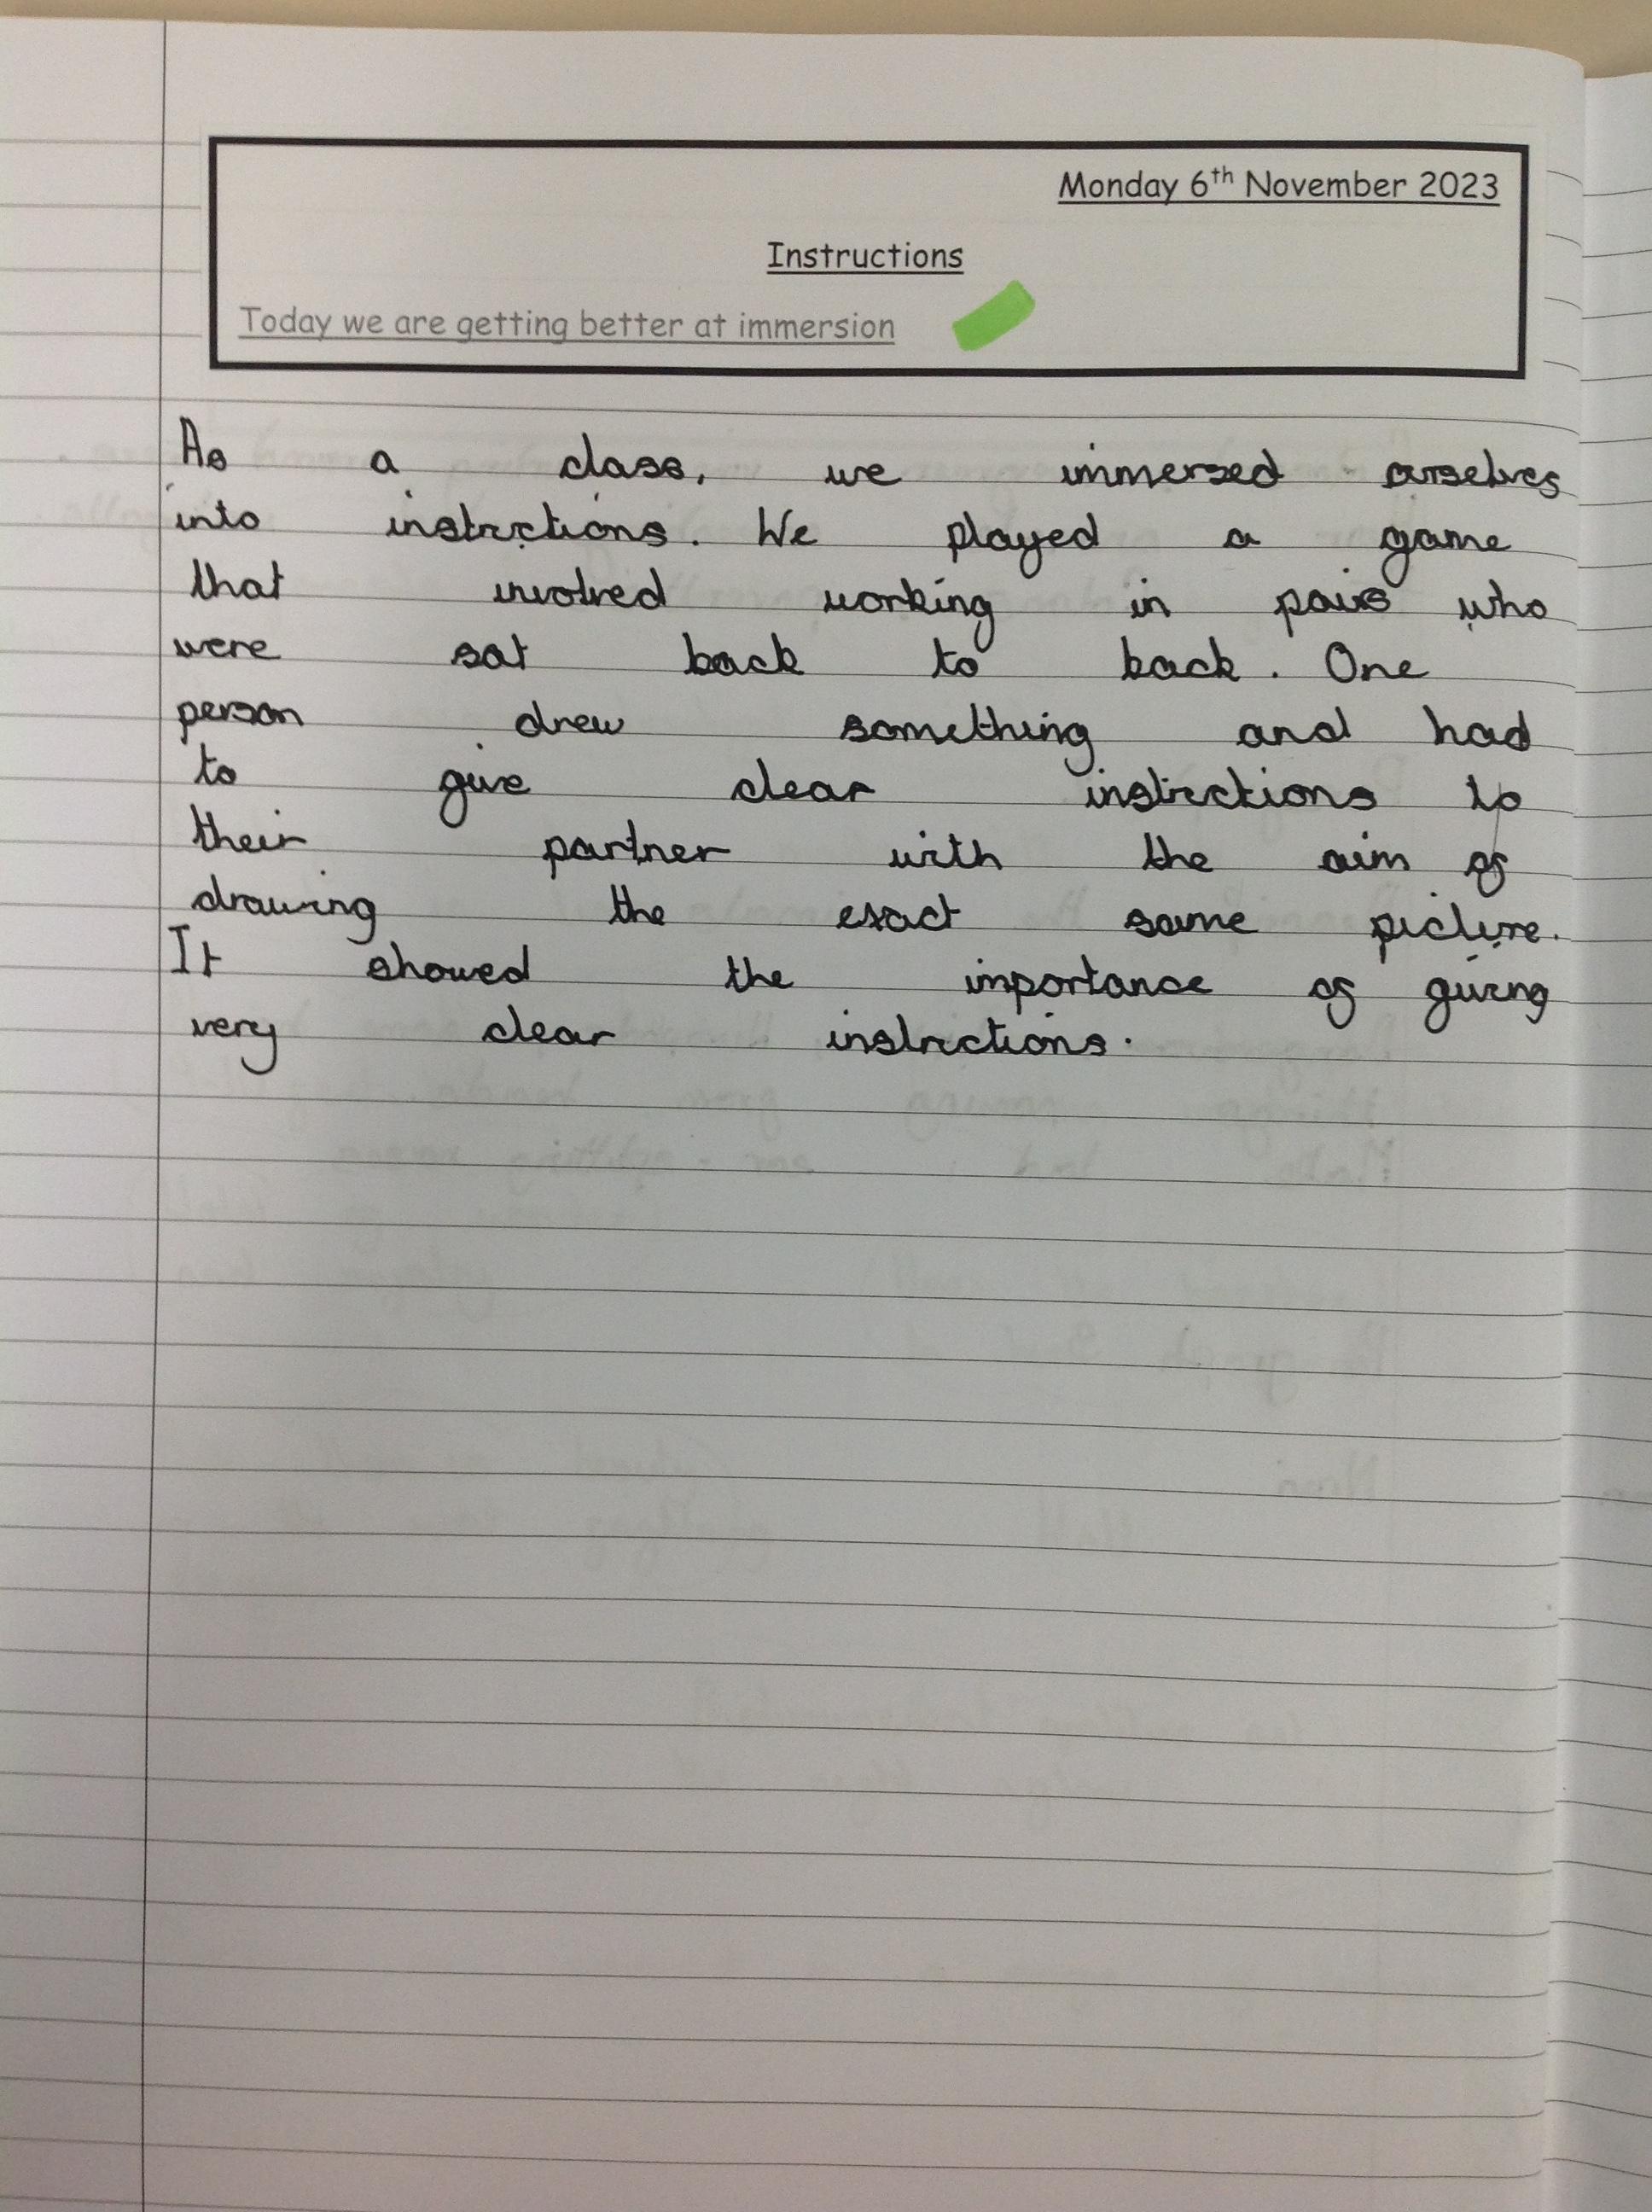 Monday 6th November 2023
Instructions
Today we are getting better at immersion
As a class, we immersed ourselves
into instructions. We played a game
that involved working in pairs who
were sat back to back. One
person drew something and had
to give clear instructions to
their partner with the aim of
drawing the exact same picture.
It showed the importance of giving
very clear instructions.